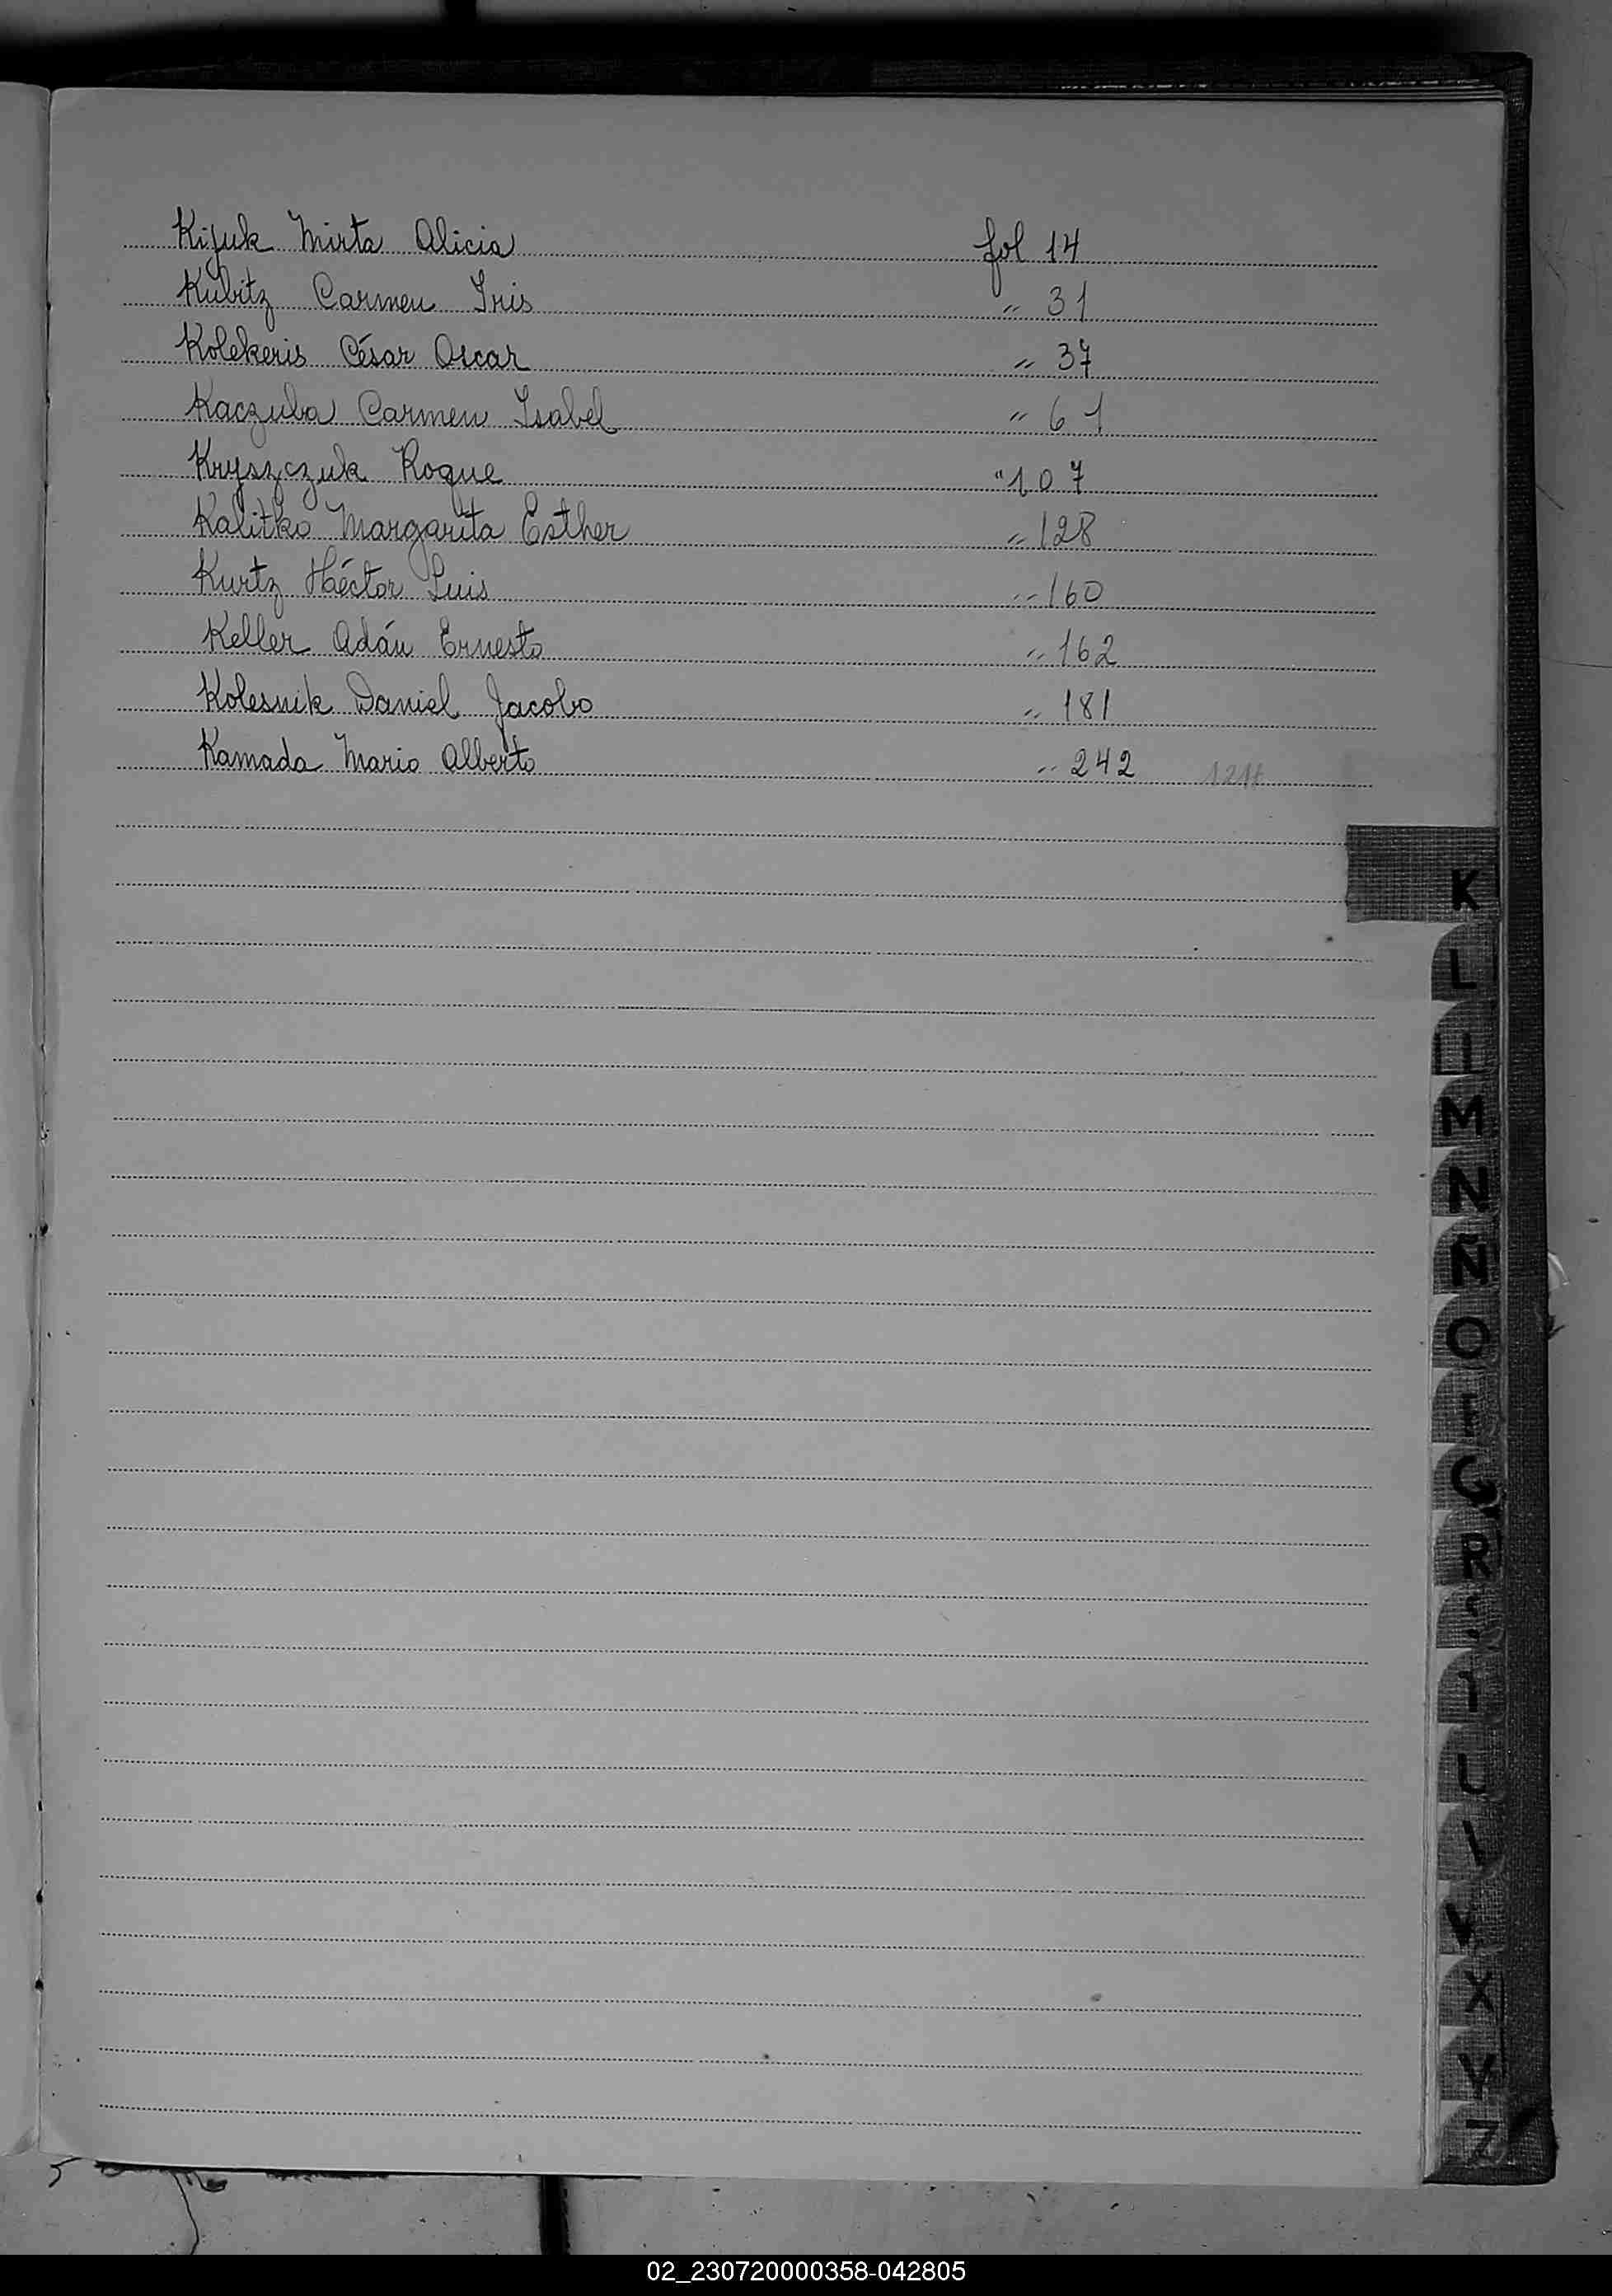 Kijuk Mirta Alicia fol 14
Kubitz Carmen Iris " 31
Kolekeris César Oscar " 37
Kaczuba Carmen Isabel " 61
Kryszczuk Roque " 107
Kalitko Margarita Esther " 128
Kurtz Héctor Luis " 160
Keller Adán Ernesto " 162
Kolesnik Daniel Jacobo " 181
Kamada Mario Alberto " 242
K
L
M
N
Ñ
O
R
X
Y
Z
02_230720000358-042805